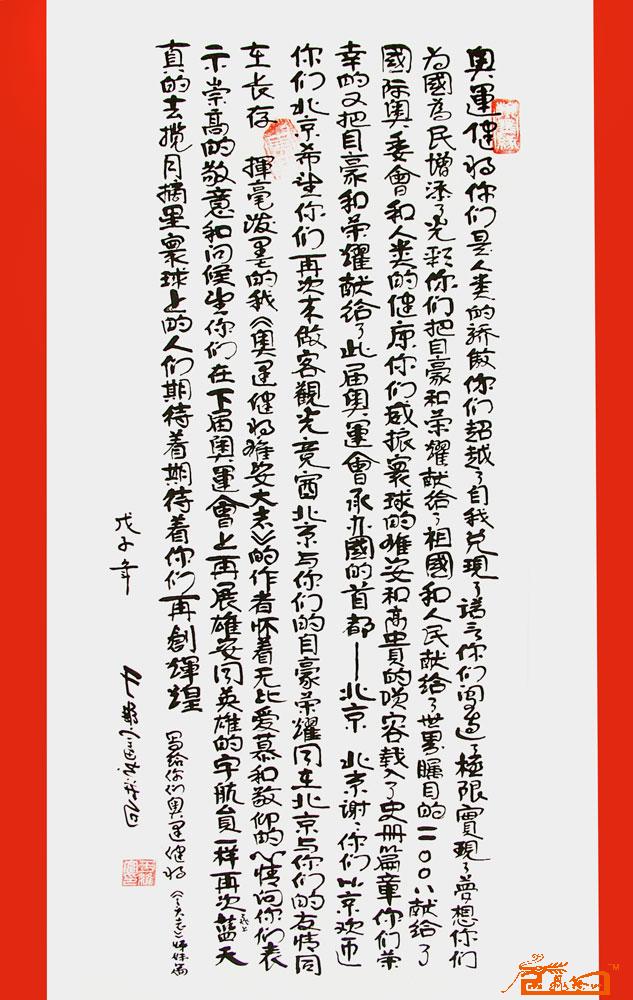 奥運健将你们是人类的骄傲你们超越了自我兑现了诺言你们闯过了極限實現了夢想你们
为國为民增添了光彩你们把自豪和荣耀献给了祖國和人民献给了世界瞩目的二〇〇八献给了
國际奥委會和人类的健康你们威振寰球的雄姿和高貴的咲容载入了史册篇章你们荣
幸的又把自豪和荣耀献给了此届奥運會承办國的首都——北京 北京谢谢你们北京欢迎
你们北京希望你们再次来做客觀光竞酉北京与你们的自豪荣耀同在北京与你们的友情同
在长存 揮毫泼墨的我《奥運健将雄姿大志》的作者怀着无比爱慕和敬仰的心情向你们表
示崇高的敬意和问候望你们在下届奥運會上再展雄姿同英雄的宇航员一样再次蓝天
真的去揽月摘星寰球上的人们期待着期待着你们再創輝煌
写给你们奥運健将 大志》姊妹篇
戊子年